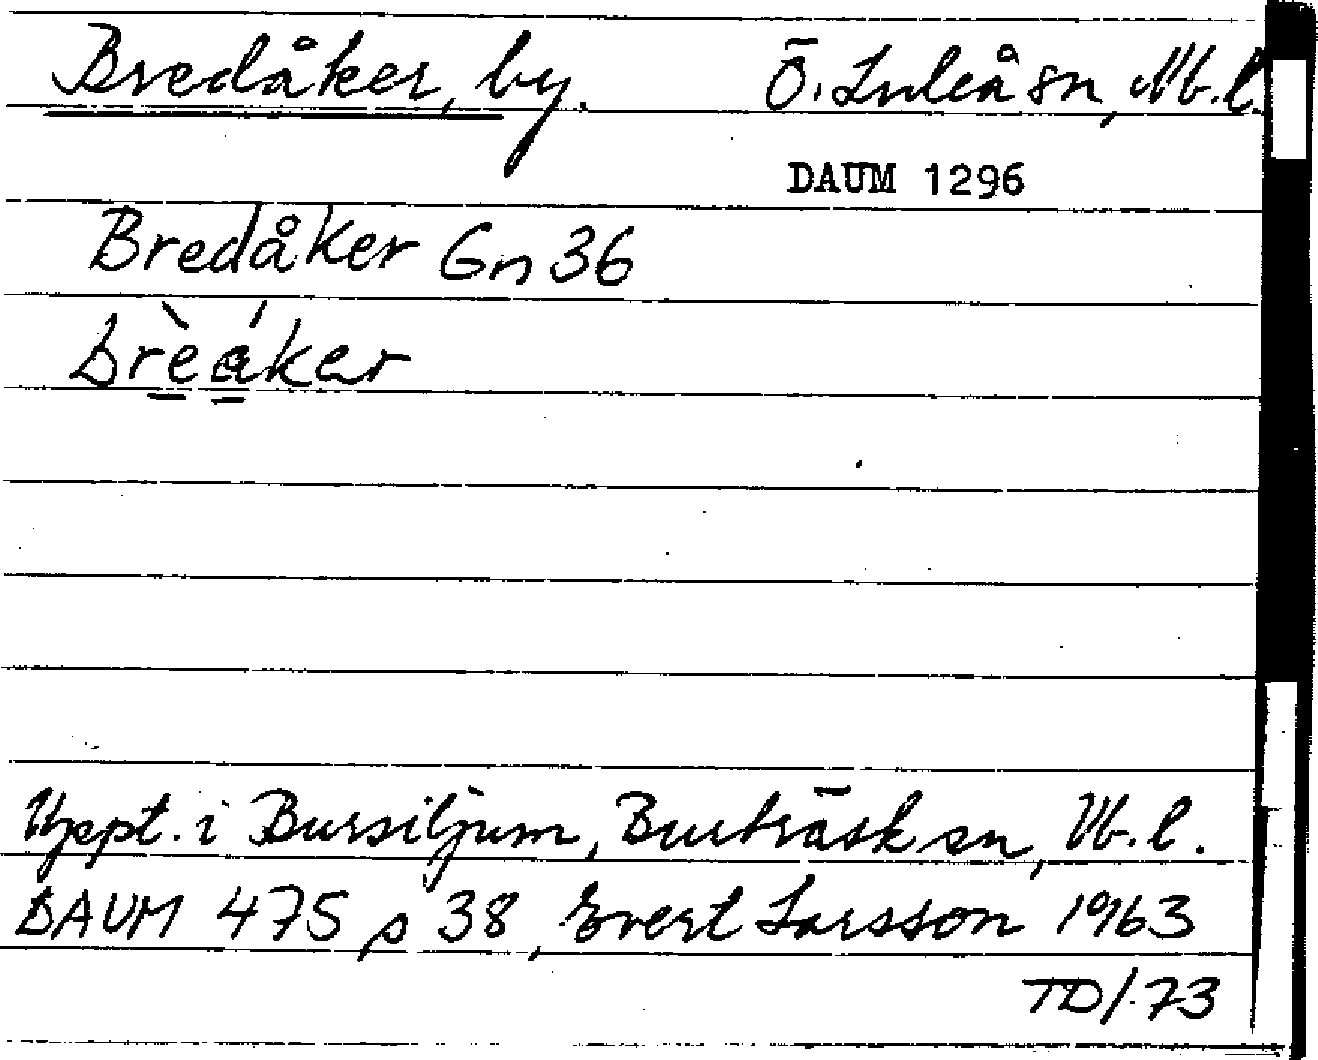 Bredåker, by. Ö. Luleå sn, Nb.l.
DAUM 1296
Bredåker Gn 36
brèáker
Uppt. i Bursiljum, Burträsk sn, Vb.l.
DAUM 475 s 38, Evert Larsson 1963
TD/.73